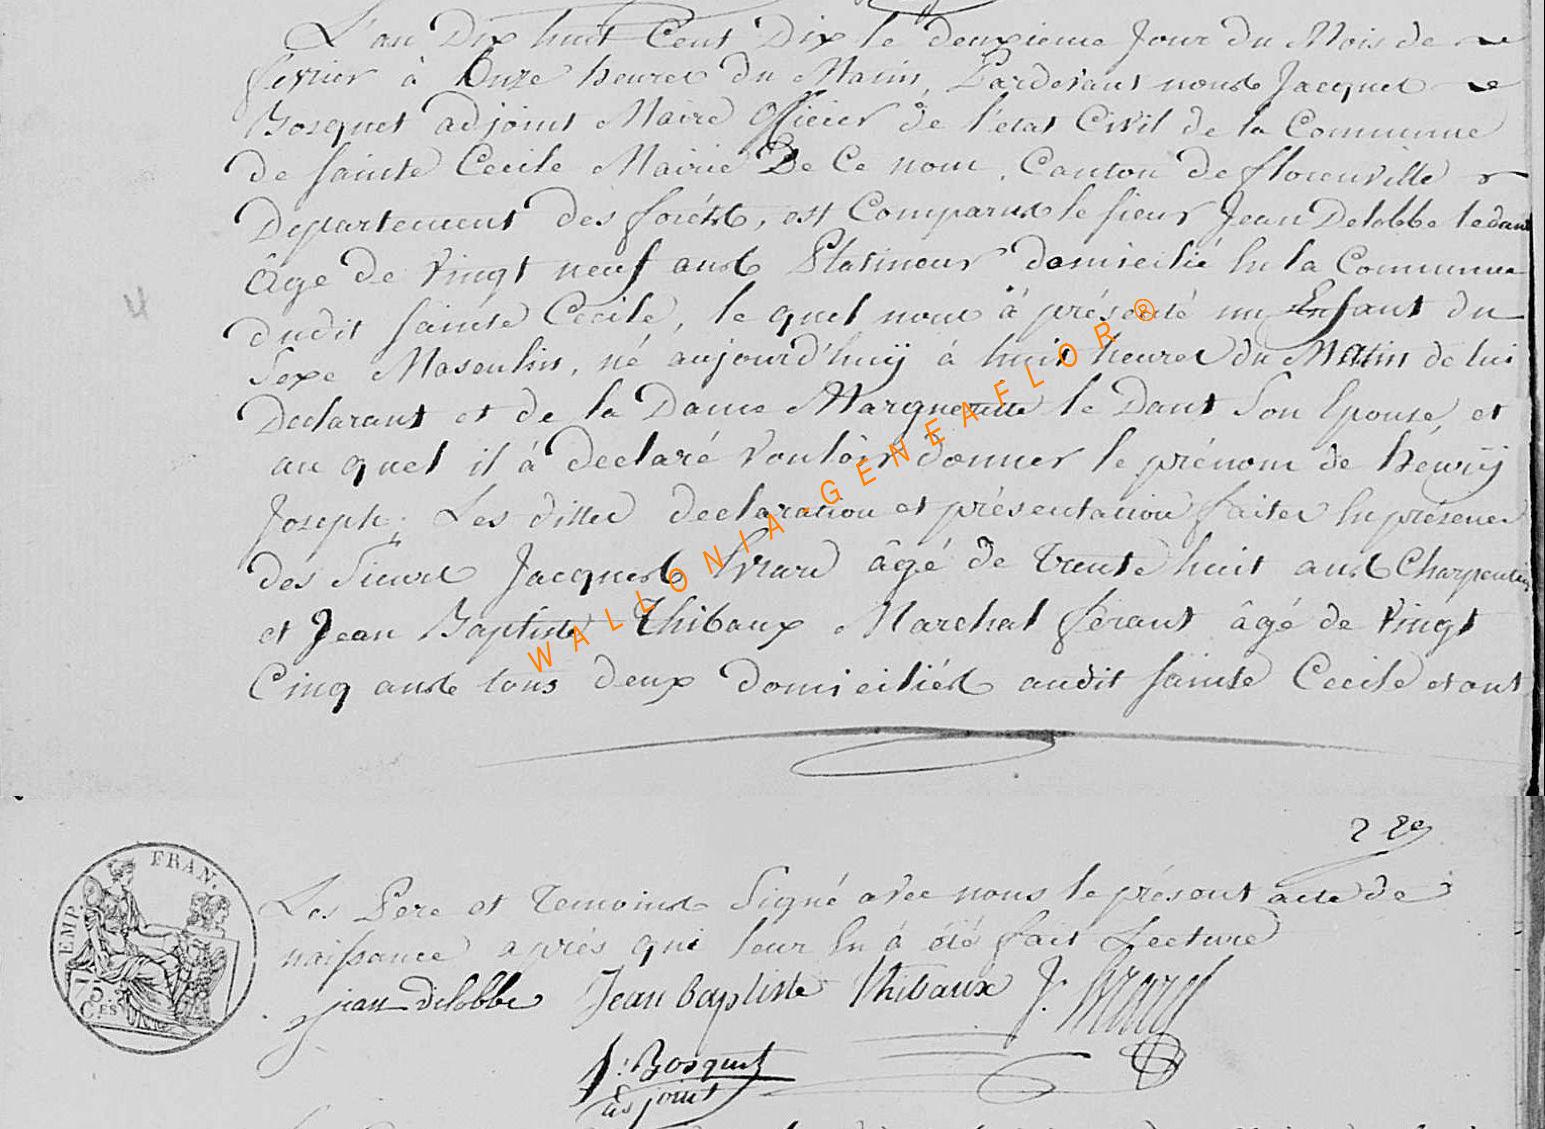 L'an Dix huit Cent Dix le deuxieme Jour du Mois de
fevrier à Onze heures du Matin, Pardevant nous Jacques
Bosquet adjoint Maire Officier de l'etat Civil de la Commune
de Sainte Cecile Mairie De Ce nom, Canton de florenville
Departement des forêts, est Comparus le sieur Jean Delobbe ledant
âge de Vingt neuf ans Platineur domicilié En la Commune
dudit Sainte Cecile, le quel nous à présenté un Enfant du
Sexe Masculin, né aujourd'huÿ à huit heures du Matin de lui
Declarant et de la Dame Marguerite le Dant Son Epouse, et
au quel il à declaré Vouloir donner le prénom de hénrÿ
Joseph; Les dittes declaration et présentation faites En présence
des Sieurs Jacques Evrard âgé de trente huit ans Charpentier
et Jean Baptiste Thibaux Marchal férant âgé de Vingt
Cinq ans tous deux domiciliés audit Sainte Cecile et ont
WALLONIA-GENEAFLOR®
22e
EMP. FRAN.
Les Pere et temoins Signé avec nous le présent acte de
naissance aprés qui leur En à été fait Lecture
jean delobbe Jean baptiste thibaux J. Evrard
J: Bosquet
adjoint